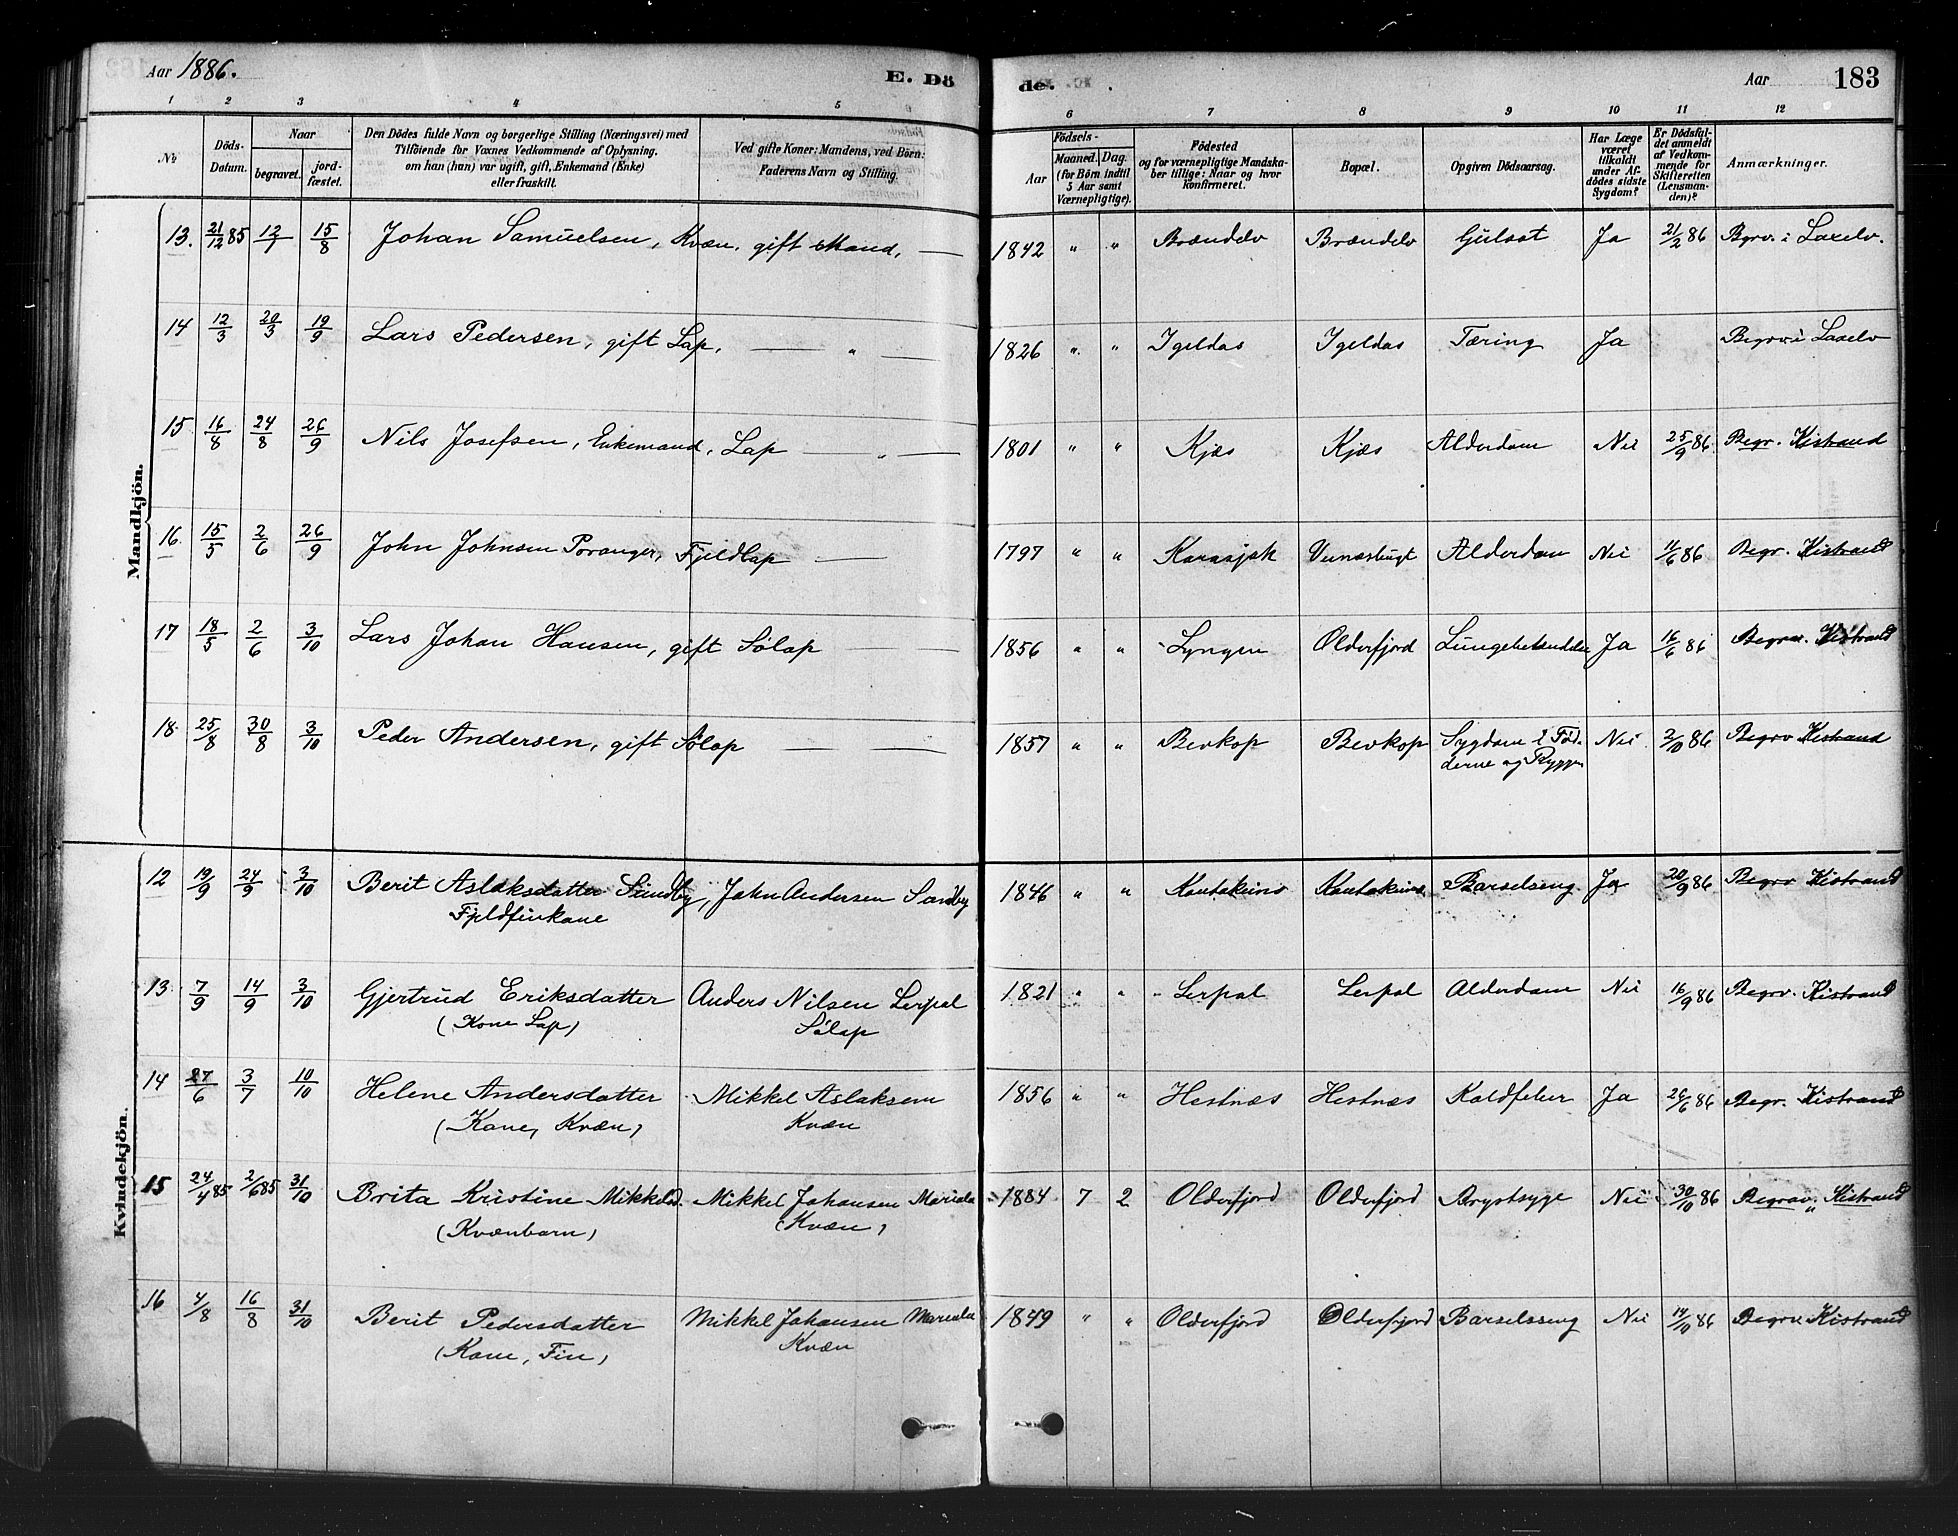 Aar 1886. E. Dö de. Aar 183
1 2 3 4 5 6 7 8 9 10 11 12
No Döds-Datum. Naar begravet. jord-fæstet. Den Dödes fulde Navn og borgerlige Stilling (Næringsvei) med Tilföiende for Voxnes Vedkommende af Oplysning. om han (hun) var ugift, gift, Enkemand (Enke) eller fraskilt. Ved gifte Koner: Mandens, ved Börn: Faderens Navn og Stilling. Födsels- Aar Maaned. Dag. (for Börn indtil 5 Aar samt Værnepligtige). Födested og for værnepligtige Mandskaber tillige: Naar og hvor konfirmeret. Bopæl. Opgiven Dödsaarsag. Har Læge været tilkaldt under Afdödes sidste Sygdom? Er Dödsfaldet anmeldt af Vedkommende for Skifteretten (Lensmanden)? Anmærkninger.
Mandkjön.
13. 21/12 85 12/1 15/8 Johan Samuelsen, Kvæn. gift Mand, — 1842 " " Brændelv Brændelv Gulsot Ja 21/2 86 Bgrv. i Laxelv.
14 12/3 20/3 19/9 Lars Pedersen, gift Lap, — " — 1826 " " Igeldas Igeldas Tæring Ja Begrv i Laxelv
15 16/8 24/8 26/9 Nils Josefsen, Enkemand, Lap — " — 1801 " " Kjæs Kjæs Alderdom Nei 25/9 86 Begr. Kistrand
16. 15/5 2/6 26/9 John Johnsen Poranger, Fjeldlap — 1797 " " Karasjok Veinæsbugt Alderdom Nei 11/6 86 Begr. Kistrand
17 18/5 2/6 3/10 Lars Johan Hansen, gift Sölap — 1856 " " Lyngen Olderfjord Lungebetændelse Ja 16/6 86 Begrav. Kistrand
18. 25/8 30/8 3/10 Peder Andersen, gift Sölap — 1857 " " Bevkop Bevkop Sygdom i Föd- Nei 2/10 86 Begrv Kistrand
derne og Ryggen
Kvindekjön.
12 19/9 24/9 3/10 Berit Aslaksdatter Sundby, John Andersen Sandby 1846 " " Kautokeino Kautokeino Barselseng. Ja 20/9 86 Begrv Kistrand
Fjeldfinkone
13. 7/9 14/9 3/10 Gjertrud Eriksdatter Anders Nilsen Lerpol 1821 " " Lerpol Lerpol Alderdom Nei 16/9 86 Begrv. Kistrand
(Kone Lap) Sölap
14 27/6 3/7 10/10 Helene Andersdatter Mikkel Aslaksen 1856 " " Hestnæs Hestnæs Koldfeber Ja 26/6 86 Begr. Kistrand
(Kone, Kvæn) Kvæn
15 24/4 85 2/6 85 31/10 Brita Kristine Mikkelsd. Mikkel Johansen Mariala 1884 7 2 Olderfjord Olderfjord Brystsyge Nei 30/10 86 Begrav. " Kistrand
(Kvænbarn) (Kvæn)
16 4/8 16/8 31/10 Berit Pedersdatter Mikkel Johansen Mariala 1849 " " Olderfjord Olderfjord Barselsseng Nei 14/10 86 Begrv. Kistrand
(Kone, Fin) Kvæn